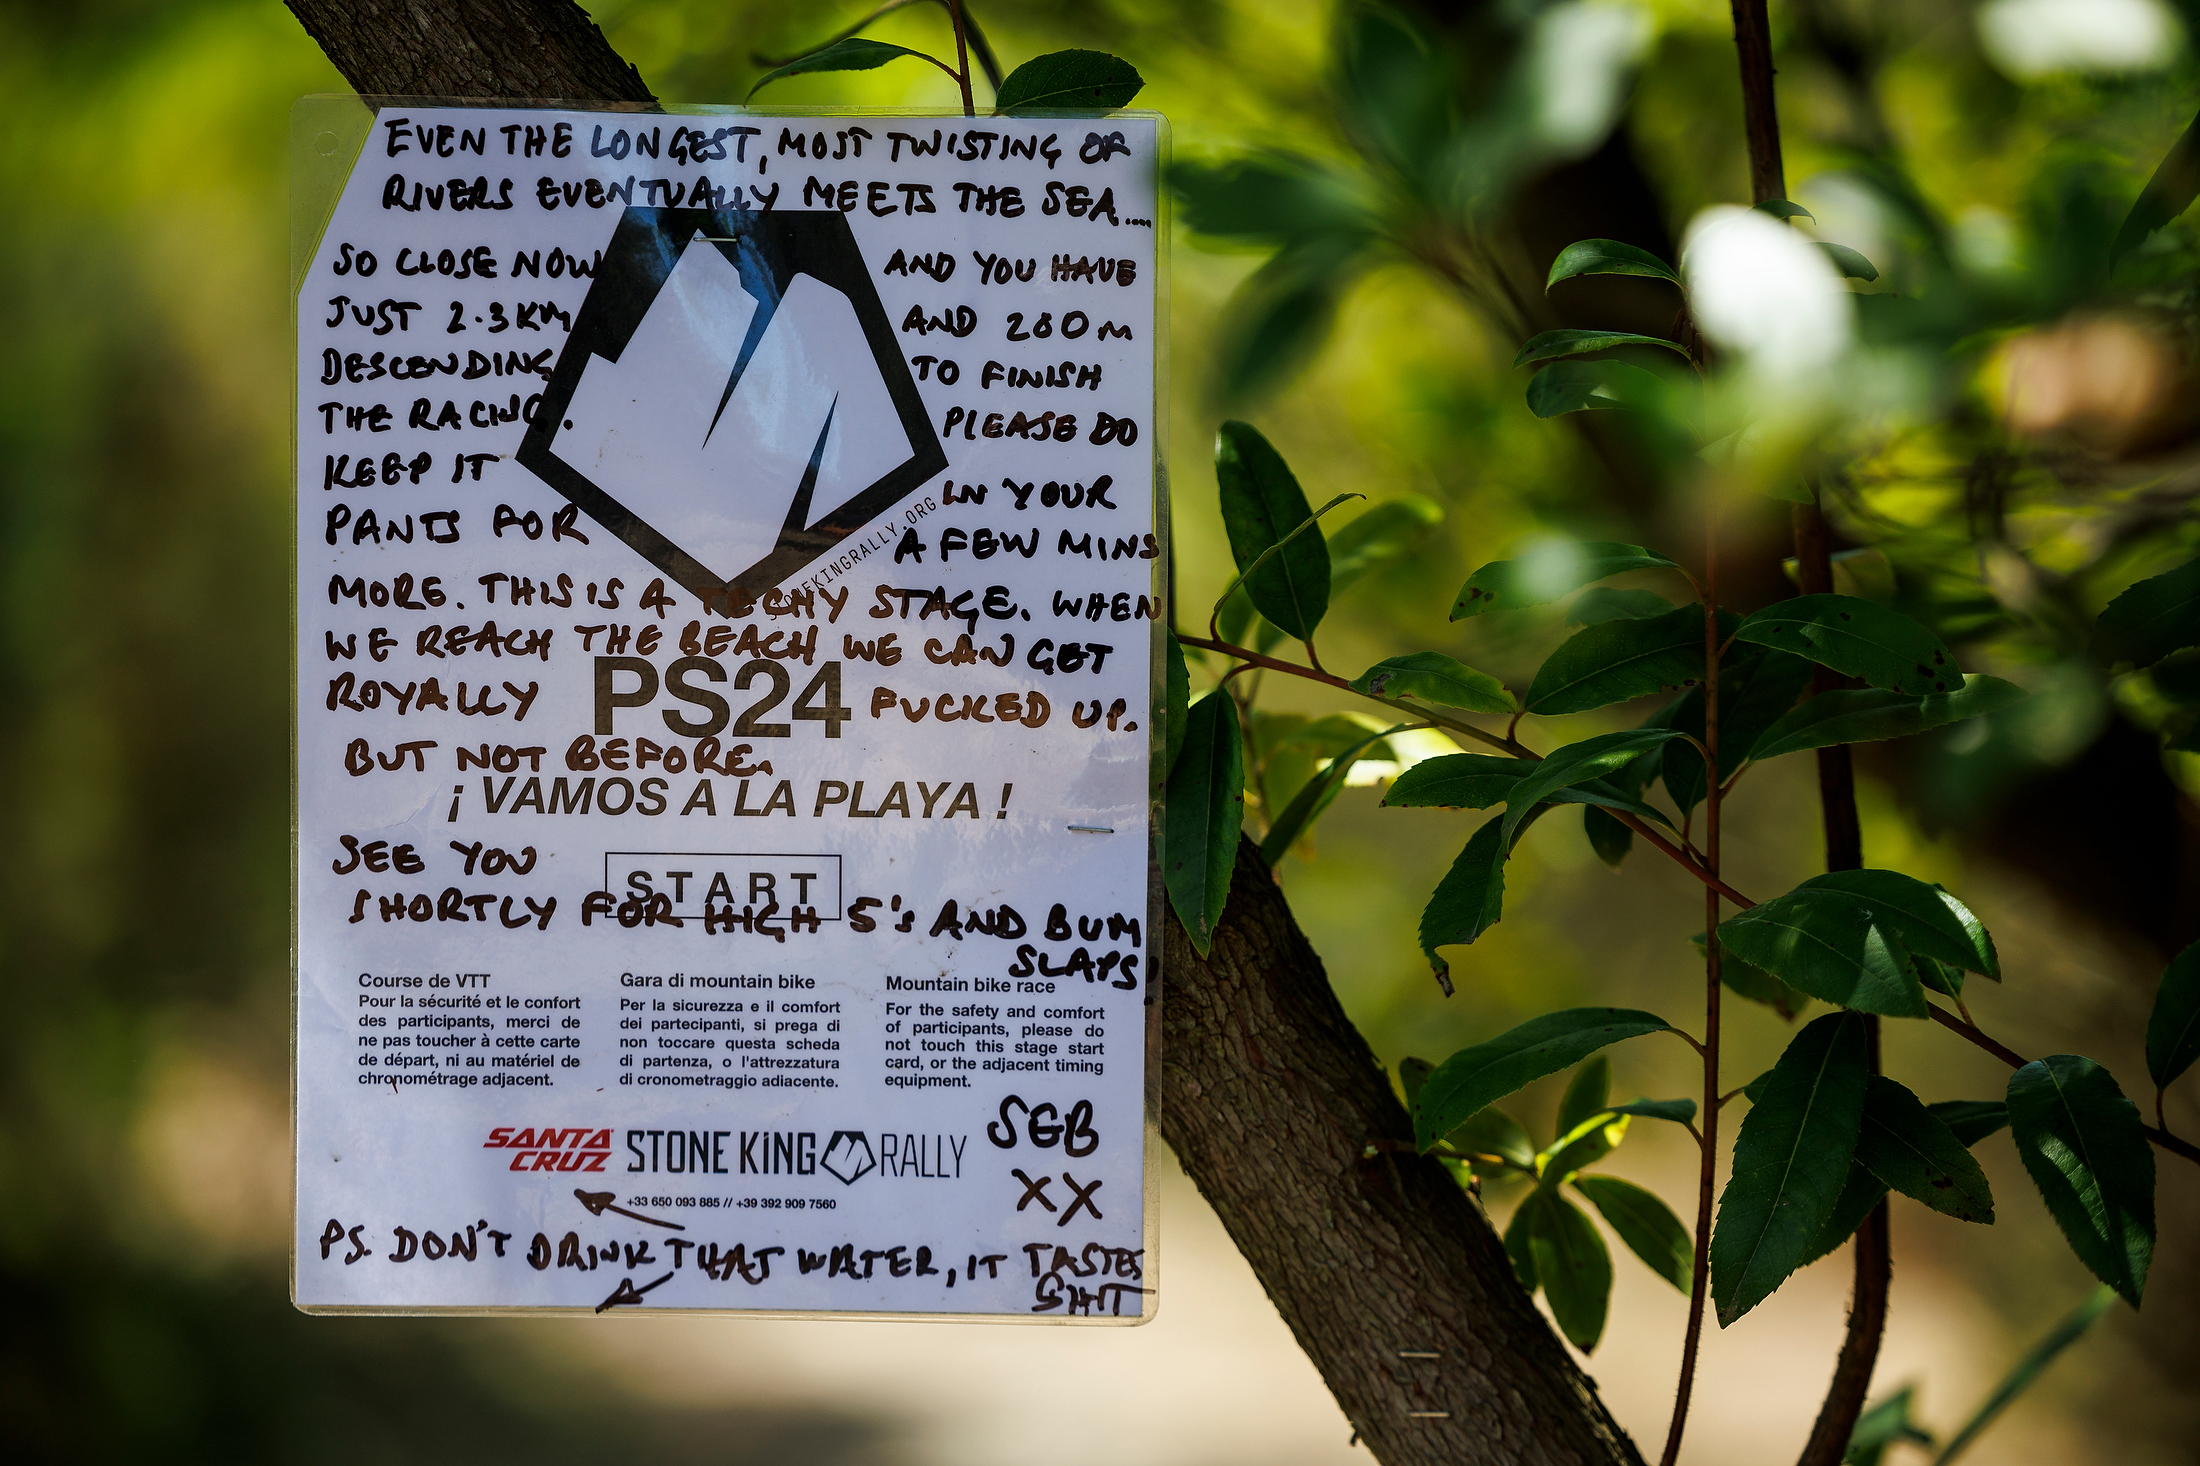 EVEN THE LONGEST, MOST TWISTING OF
RIVERS EVENTUALLY MEETS THE SEA....
SO CLOSE NOW AND YOU HAVE
JUST 2.3KM AND 200m
DESCENDING TO FINISH
THE RACING. PLEASE DO
KEEP IT IN YOUR
PANTS FOR A FEW MINS
STONEKINGRALLY.ORG
MORE. THIS IS A TECHY STAGE. WHEN
WE REACH THE BEACH WE CAN GET
ROYALLY FUCKED UP.
PS24
BUT NOT BEFORE.
¡ VAMOS A LA PLAYA !
SEE YOU
START
SHORTLY FOR HIGH 5's AND BUM
SLAPS!
Course de VTT
Pour la sécurité et le confort
des participants, merci de
ne pas toucher à cette carte
de départ, ni au matériel de
chronométrage adjacent.
Gara di mountain bike
Per la sicurezza e il comfort
dei partecipanti, si prega di
non toccare questa scheda
di partenza, o l'attrezzatura
di cronometraggio adiacente.
Mountain bike race
For the safety and comfort
of participants, please do
not touch this stage start
card, or the adjacent timing
equipment.
SANTA CRUZ STONE KING RALLY
+33 650 093 885 // +39 392 909 7560
SEB
XX
PS. DON'T DRINK THAT WATER, IT TASTES
SHIT